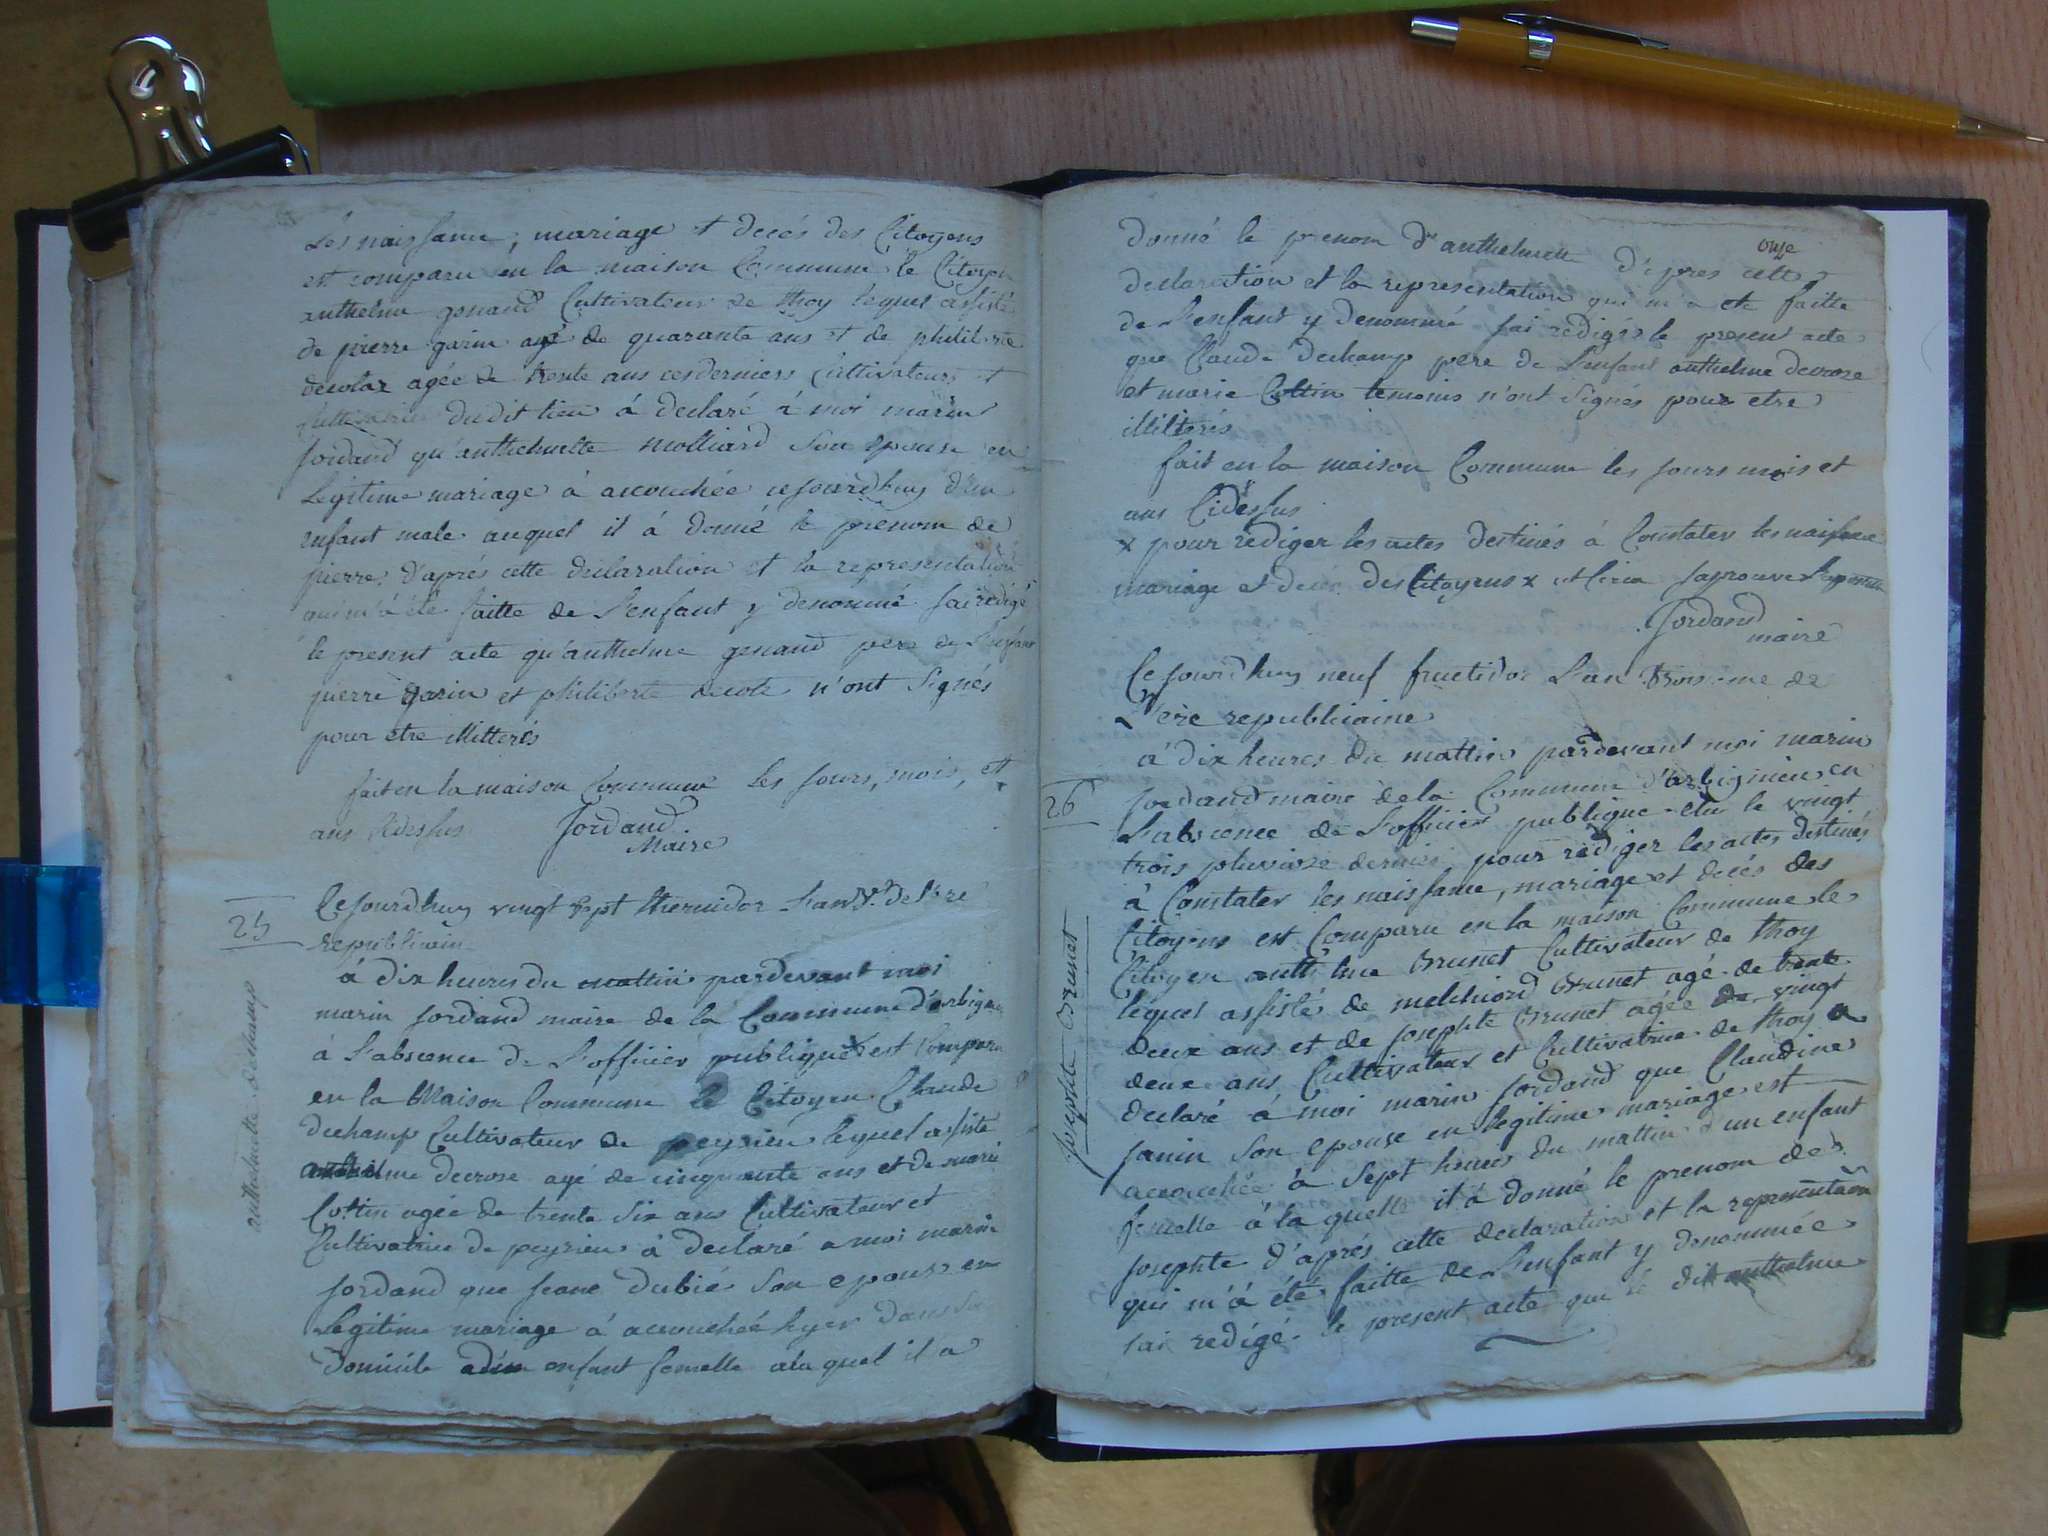 Les naissance, mariage et decés des Citoyens
est comparu en la maison Commune le Citoyen
anthelme genand Cultivateur de thoy lequel assisté
de pierre garin agé de quarante ans et de philiberte
decolaz agée de trente ans ces derniers Cultivateurs et
Cultivatrice dudit lieu á declaré á moi marin
Jordand qu'anthelmette molliard Son epouse en
Legitime mariage á accouchée cejourdhuy d'un
enfant male auquel il á donné le prenom de
pierre. D'aprés cette declaration et la representation
qui m'á été faitte de L'enfant y denommé jai redigé
le present acte qu'anthelme genand pere de L'enfant
pierre garin et philiberte decola n'ont Signés
pour etre illitterés
fait en la maison Commune les jours, mois, et
ans Cidessus Jordand
Maire
25
Cejourdhuy vingt sept thermidor Lan 3e. de l'ere
republicain
á dix heures du mattin pardevant moi
marin Jordand maire de la Commune d'arbignieu
á L'abscence de L'officier publique x est Comparu
en la Maison Commune le Citoyen Claude
dechamp Cultivateur de peyrieu lequel assisté
anthelme decrose agé de cinquante ans et de marie
Cottin agée de trente Six ans Cultivateur et
Cultivatrice de peyrieu á declaré a moi marin
Jordand que jeane dubié Son epouse en
Legitime mariage á accouchée hyer dans Son
Domicile enfant femelle ala quel il a
anthelmette dechamp
onze
donné le prenom d'anthelmette D'apres cette
declaration et la representation qui m'a ete faitte
de L'enfant y denommé jai redigés le presen acte
que Claude dechamp pere de L'enfant anthelme decroze
et marie Cottin temoins n'ont Signés pour etre
illiterés
fait en la maison Commune les jours mois et
ans Cidessus
x pour rediger les actes destinés á Constater les naissance
mariage et decés des Citoyens x japrouve L'apostille
Jordand
maire
Cejourdhuy neuf fructidor L'an troisieme de
L'ere republicaine
á dix heures du mattin pardevant moi marin
26
Jordand maire de la Commune d'arbignieu en
L'abscence de L'officier publique elu le vingt
trois pluviose dernier pour rediger les actes destinés
á Constater les naissance, mariage et decés des
Citoyens est Comparu en la maison Commune le
Citoyen anthelme Brunet Cultivateur de thoy
lequel assistés de melchiord Brunet agé de trente
deux ans et de josephte Brunet agée de vingt
deux ans Cultivateur et Cultivatrice de thoy a
declaré á moi marin Jordand que Claudine
janin Son epouse en legitime mariage est
accouchée á Sept heures du mattin d'un enfant
femelle á la quelle il á donné le prenom de
josephte d'aprés cette declaration et la representation
qui m'á été faitte de L'enfant y denommée
jai redigé le present acte que le dit anthelme
Josephte Brunet